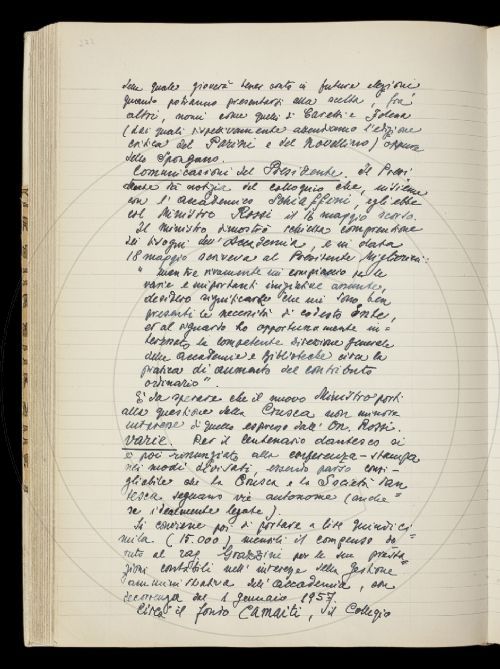 232
della quale gioverà tener conto in future elezioni
quando potranno presentarsi alla scelta, fra
altri, nomi come quelli di Caretti e Folena
(dai quali rispettivamente attendiamo l'edizione
critica del Parini e del Novellino) oppure
dello Spongano.
Comunicazioni del Presidente. Il Presi
dente dà notizia del colloquio che, insieme
con l'accademico Schiaffini, egli ebbe
col Ministro Rossi il 16 maggio scorso.
Il Ministro dimostrò schietta comprensione
dei bisogni dell'Accademia, e in data
18 maggio scriveva al Presidente Migliorini:
" Mentre vivamente mi compiaccio per le
varie e importanti iniziative assunte,
desidero significarLe che mi sono ben
presenti le necessità di codesto Ente,
ed al riguardo ho opportunamente in-
teressato la competente Direzione generale
delle accademie e Biblioteche circa la
pratica di aumento del contributo
ordinario".
È da sperare che il nuovo Ministro porti
alla questione della Crusca non minore
interesse di quello espresso dall'On. Rossi.
Varie. Per il centenario dantesco si
è poi rinunziato alla conferenza-stampa
nei modi divisati, essendo parso consi-
gliabile che la Crusca e la Società Dan
tesca seguano vie autonome (anche
se idealmente legate).
Si conviene poi di portare a lire quindici
mila (15.000) mensili il compenso do-
vuto al rag. Grazzini per le sue presta-
zioni contabili nell'interesse della gestione
amministrativa dell'Accademia, con
decorrenza dal 1 gennaio 1957.
Circa il fondo Camaiti, il Collegio